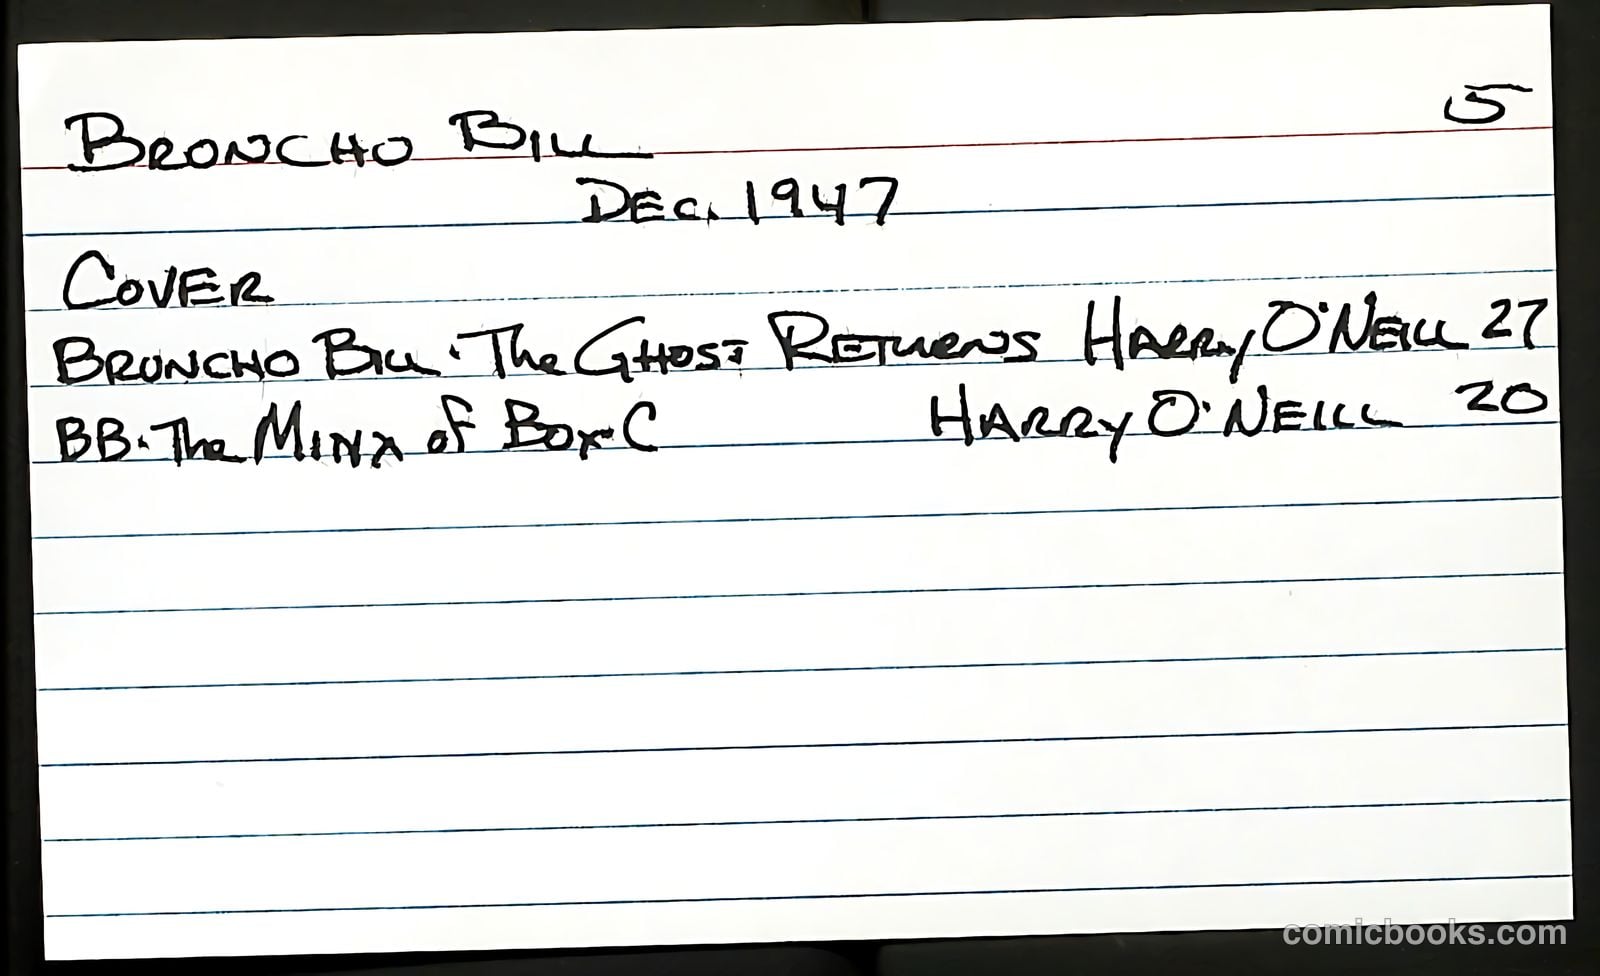 BRONCHO BILL 5
DEC. 1947
COVER
BRONCHO BILL · The GHOST RETURNS HARRY O'NEILL 27
BB · The MINX of Box-C HARRY O'NEILL 20
comicbooks.com